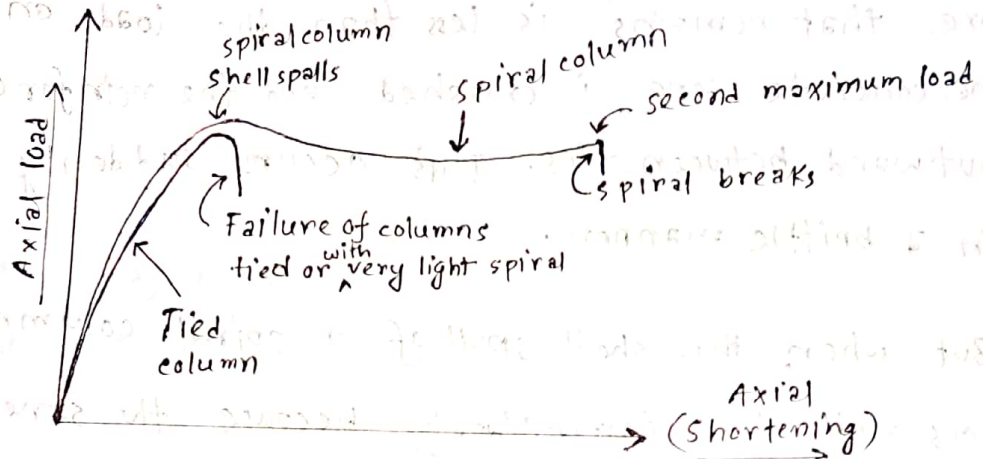 spiral column
shell spalls
spiral column
second maximum load
spiral breaks
Axial load
Failure of columns
tied or with very light spiral
Tied
column
Axial
(Shortening)